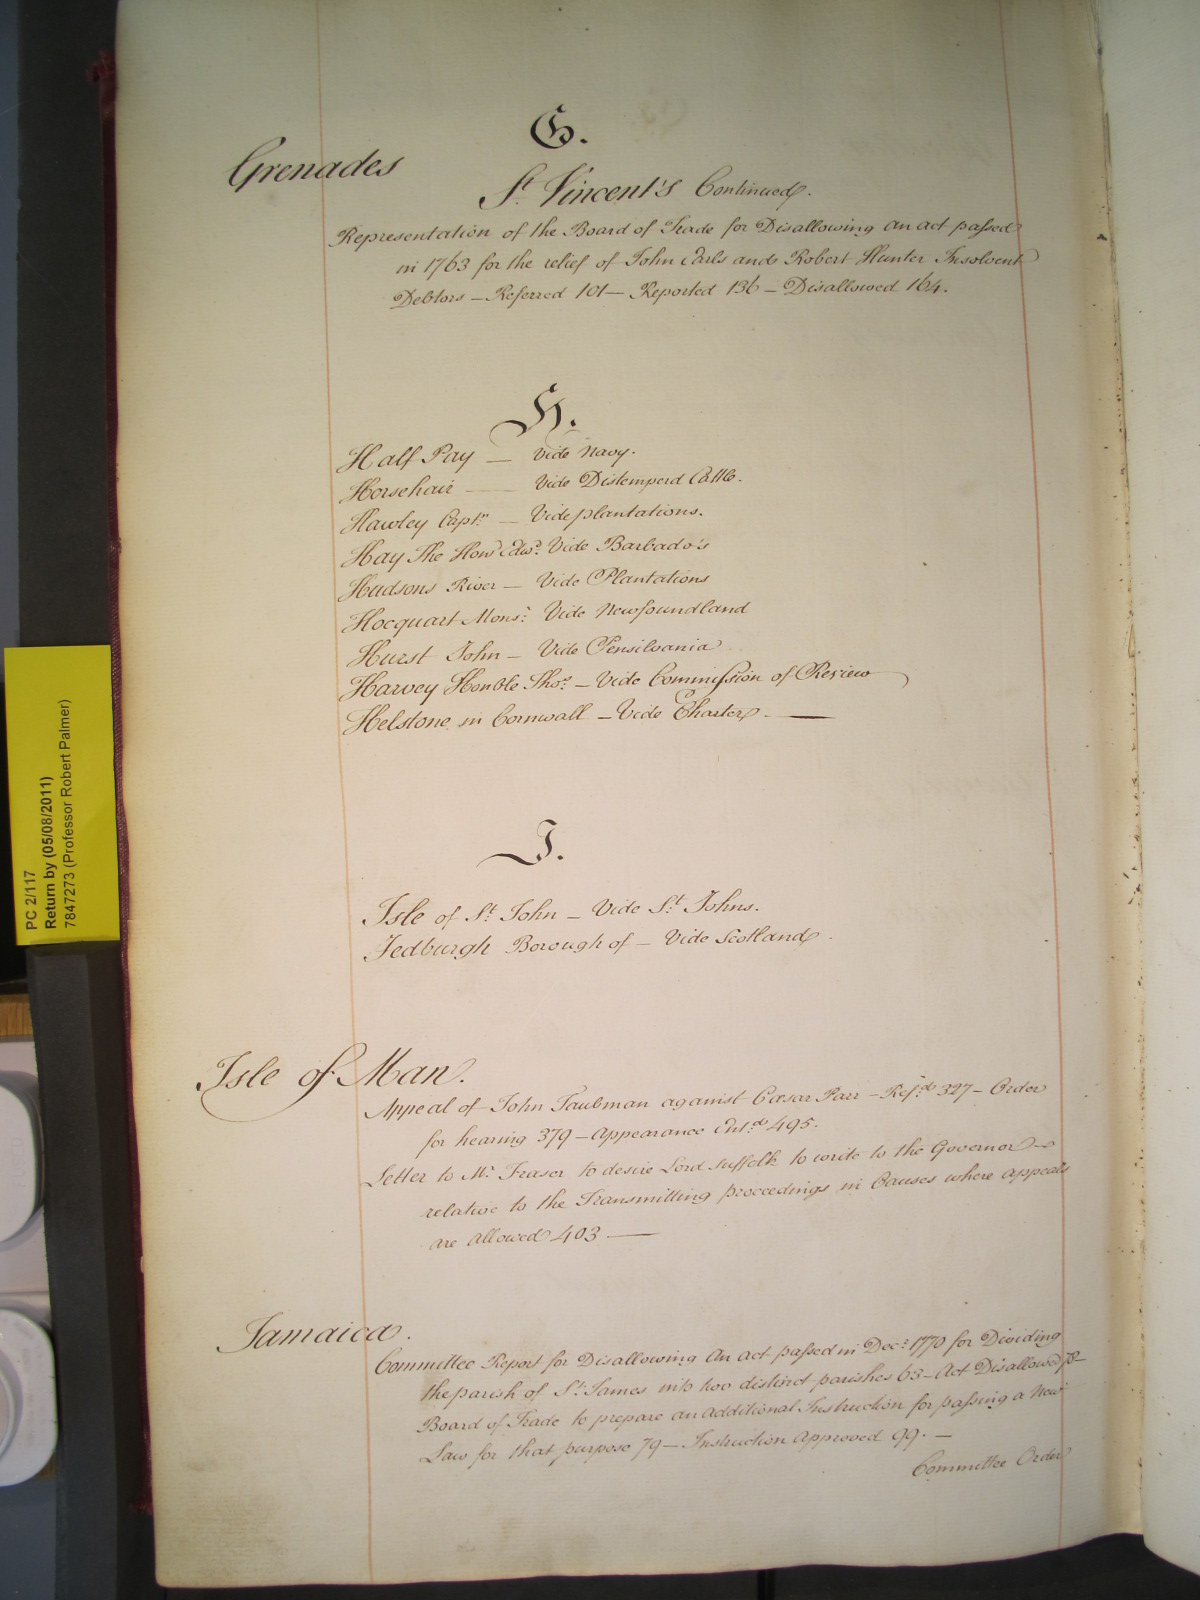 G.
Grenades
St. Vincent's Continued.
Representation of the Board of Trade for Disallowing an act passed
in 1763 for the relief of John Earls and Robert Hunter Insolvent
Debtors - Referred 101 - Reported 136 - Disallowed 164.
H.
Half Pay - Vide Navy.
Horsehair - Vide Distemperd Cattle.
Hawley Captn. - Vide plantations.
Hay The Hon Edwd. Vide Barbado's
Hudsons River - Vide Plantations
Hocquart Monsr. Vide Newfoundland
Hurst John - Vide Pensilvania
Harvey Honble Thos. - Vide Commission of Review
Helstone in Cornwall - Vide Charters.
J.
Isle of St. John - Vide St. Johns.
Jedburgh Borough of - Vide Scotland.
Isle of Man.
Appeal of John Taubman against Cæsar Parr - Refd. 327 - Order
for hearing 379 - Appearance Entd. 495.
Letter to Mr. Fraser to desire Lord Suffolk to write to the Governor
relative to the Transmitting proceedings in Causes where appeals
are allowed 403
Jamaica.
Committee Report for Disallowing An act passed in Decr. 1770 for Dividing
the parish of St. James into two distinct parishes 63 - Act Disallowed 78 -
Board of Trade to prepare an additional Instruction for passing a New
Law for that purpose 79 - Instruction Approved 99. -
Committee Order
PC 2/117
Return by (05/08/2011)
7847273 (Professor Robert Palmer)